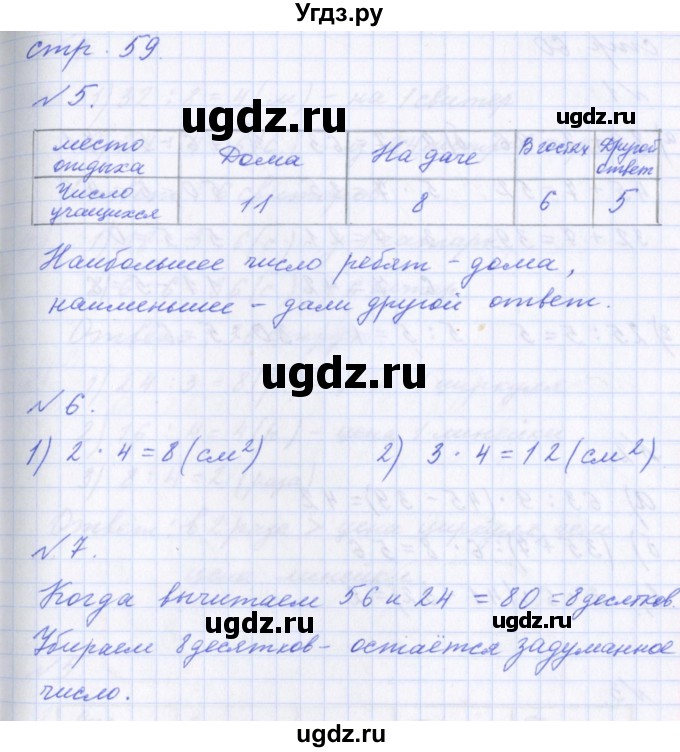 Угдз.ру
стр. 59.
№ 5.
место отдыха Дома На даче В гостях Другой ответ
Число учащихся 11 8 6 5
Наибольшее число ребят - дома,
наименьшее - дали другой ответ.
№ 6.
1) 2 · 4 = 8 (см²) 2) 3 · 4 = 12 (см²)
№ 7.
Когда вычитаем 56 и 24 = 80 = 8 десятков.
Убираем 8 десятков - остаётся задуманное
число.
ugdz.ru
ugdz.ru
ugdz.ru
ugdz.ru
ugdz.ru
ugdz.ru
ugdz.ru
ugdz.ru